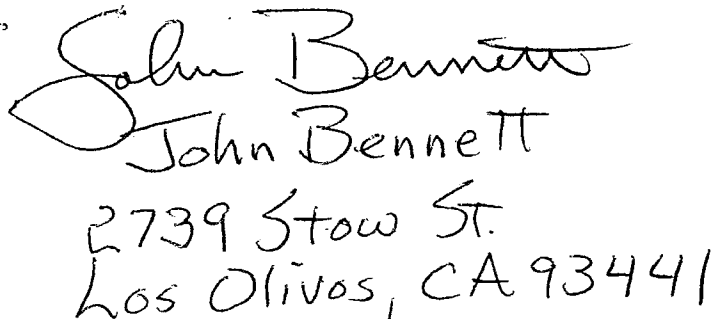 John Bennett
John Bennett
2739 Stow St.
Los Olivos, CA 93441